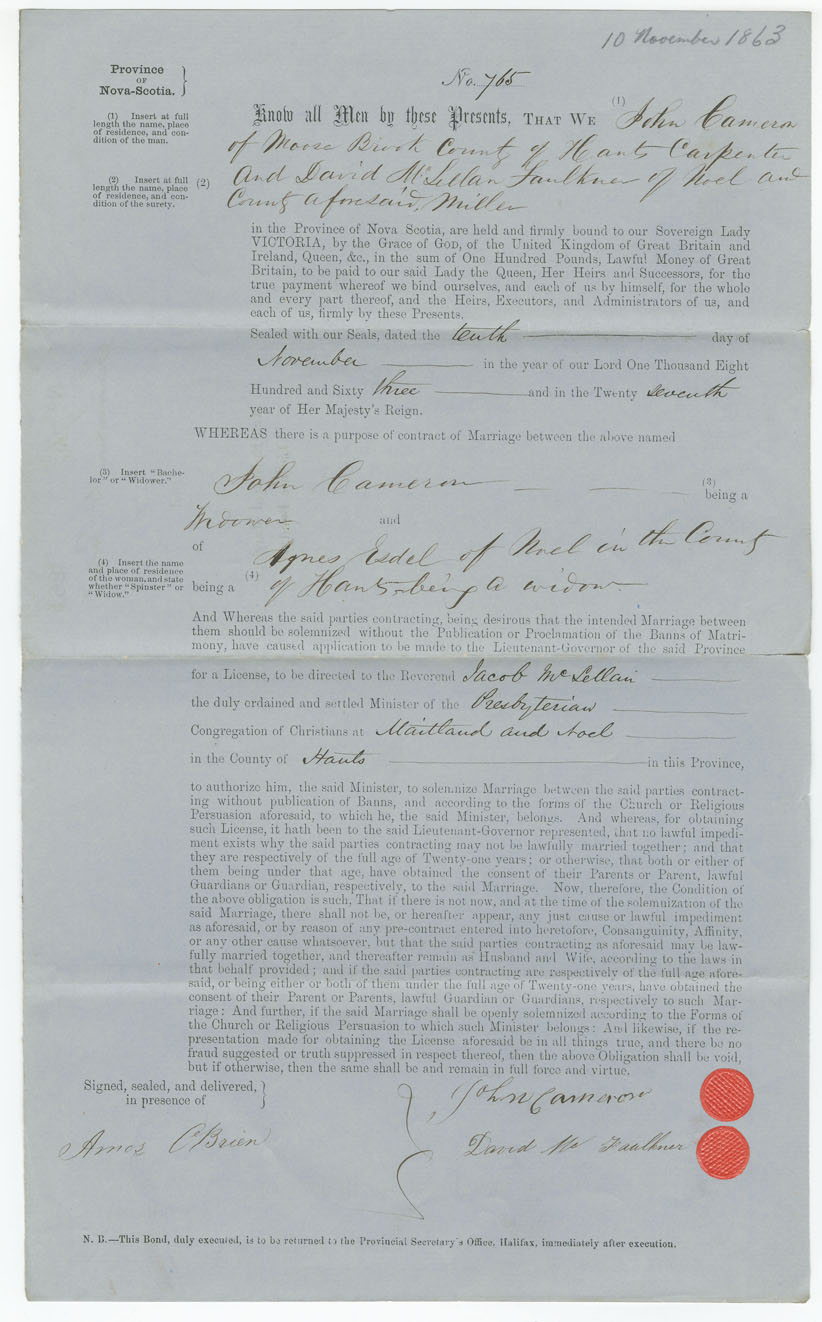 10 November 1863
Province
OF
Nova-Scotia.
No. 765
(1) Insert at full
length the name, place
of residence, and con-
dition of the man.
Know all Men by these Presents, THAT WE (1) John Cameron
of Moose Brook County of Hants Carpenter
(2) Insert at full
length the name, place
of residence, and con-
dition of the surety.
(2) And David McLellan Faulkner of Noel and
County aforesaid, Miller
in the Province of Nova Scotia, are held and firmly bound to our Sovereign Lady
VICTORIA, by the Grace of GOD, of the United Kingdom of Great Britain and
Ireland, Queen, &c., in the sum of One Hundred Pounds, Lawful Money of Great
Britain, to be paid to our said Lady the Queen, Her Heirs and Successors, for the
true payment whereof we bind ourselves, and each of us by himself, for the whole
and every part thereof, and the Heirs, Executors, and Administrators of us, and
each of us, firmly by these Presents.
Sealed with our Seals, dated the tenth day of
November in the year of our Lord One Thousand Eight
Hundred and Sixty three and in the Twenty seventh
year of Her Majesty's Reign.
WHEREAS there is a purpose of contract of Marriage between the above named
(3) Insert "Bache-
lor" or "Widower."
John Cameron (3)
being a
Widower and
of Agnes Esdel of Noel in the County
(4) Insert the name
and place of residence
of the woman, and state
whether "Spinster" or
"Widow."
being a (4) of Hants being a widow
And Whereas the said parties contracting, being desirous that the intended Marriage between
them should be solemnized without the Publication or Proclamation of the Banns of Matri-
mony, have caused application to be made to the Lieutenant-Governor of the said Province
for a License, to be directed to the Reverend Jacob McLellan
the duly ordained and settled Minister of the Presbyterian
Congregation of Christians at Maitland and Noel
in the County of Hants in this Province,
to authorize him, the said Minister, to solemnize Marriage between the said parties contract-
ing without publication of Banns, and according to the forms of the Church or Religious
Persuasion aforesaid, to which he, the said Minister, belongs. And whereas, for obtaining
such License, it hath been to the said Lieutenant-Governor represented, that no lawful impedi-
ment exists why the said parties contracting may not be lawfully married together; and that
they are respectively of the full age of Twenty-one years; or otherwise, that both or either of
them being under that age, have obtained the consent of their Parents or Parent, lawful
Guardians or Guardian, respectively, to the said Marriage. Now, therefore, the Condition of
the above obligation is such, That if there is not now, and at the time of the solemnization of the
said Marriage, there shall not be, or hereafter appear, any just cause or lawful impediment
as aforesaid, or by reason of any pre-contract entered into heretofore, Consanguinity, Affinity,
or any other cause whatsoever, but that the said parties contracting as aforesaid may be law-
fully married together, and thereafter remain as Husband and Wife, according to the laws in
that behalf provided; and if the said parties contracting are respectively of the full age afore-
said, or being either or both of them under the full age of Twenty-one years, have obtained the
consent of their Parent or Parents, lawful Guardian or Guardians, respectively to such Mar-
riage: And further, if the said Marriage shall be openly solemnized according to the Forms of
the Church or Religious Persuasion to which such Minister belongs: And likewise, if the re-
presentation made for obtaining the License aforesaid be in all things true, and there be no
fraud suggested or truth suppressed in respect thereof, then the above Obligation shall be void,
but if otherwise, then the same shall be and remain in full force and virtue.
Signed, sealed, and delivered,
in presence of
John Cameron
Amos O'Brien
David Mc Faulkner
N. B.—This Bond, duly executed, is to be returned to the Provincial Secretary's Office, Halifax, immediately after execution.